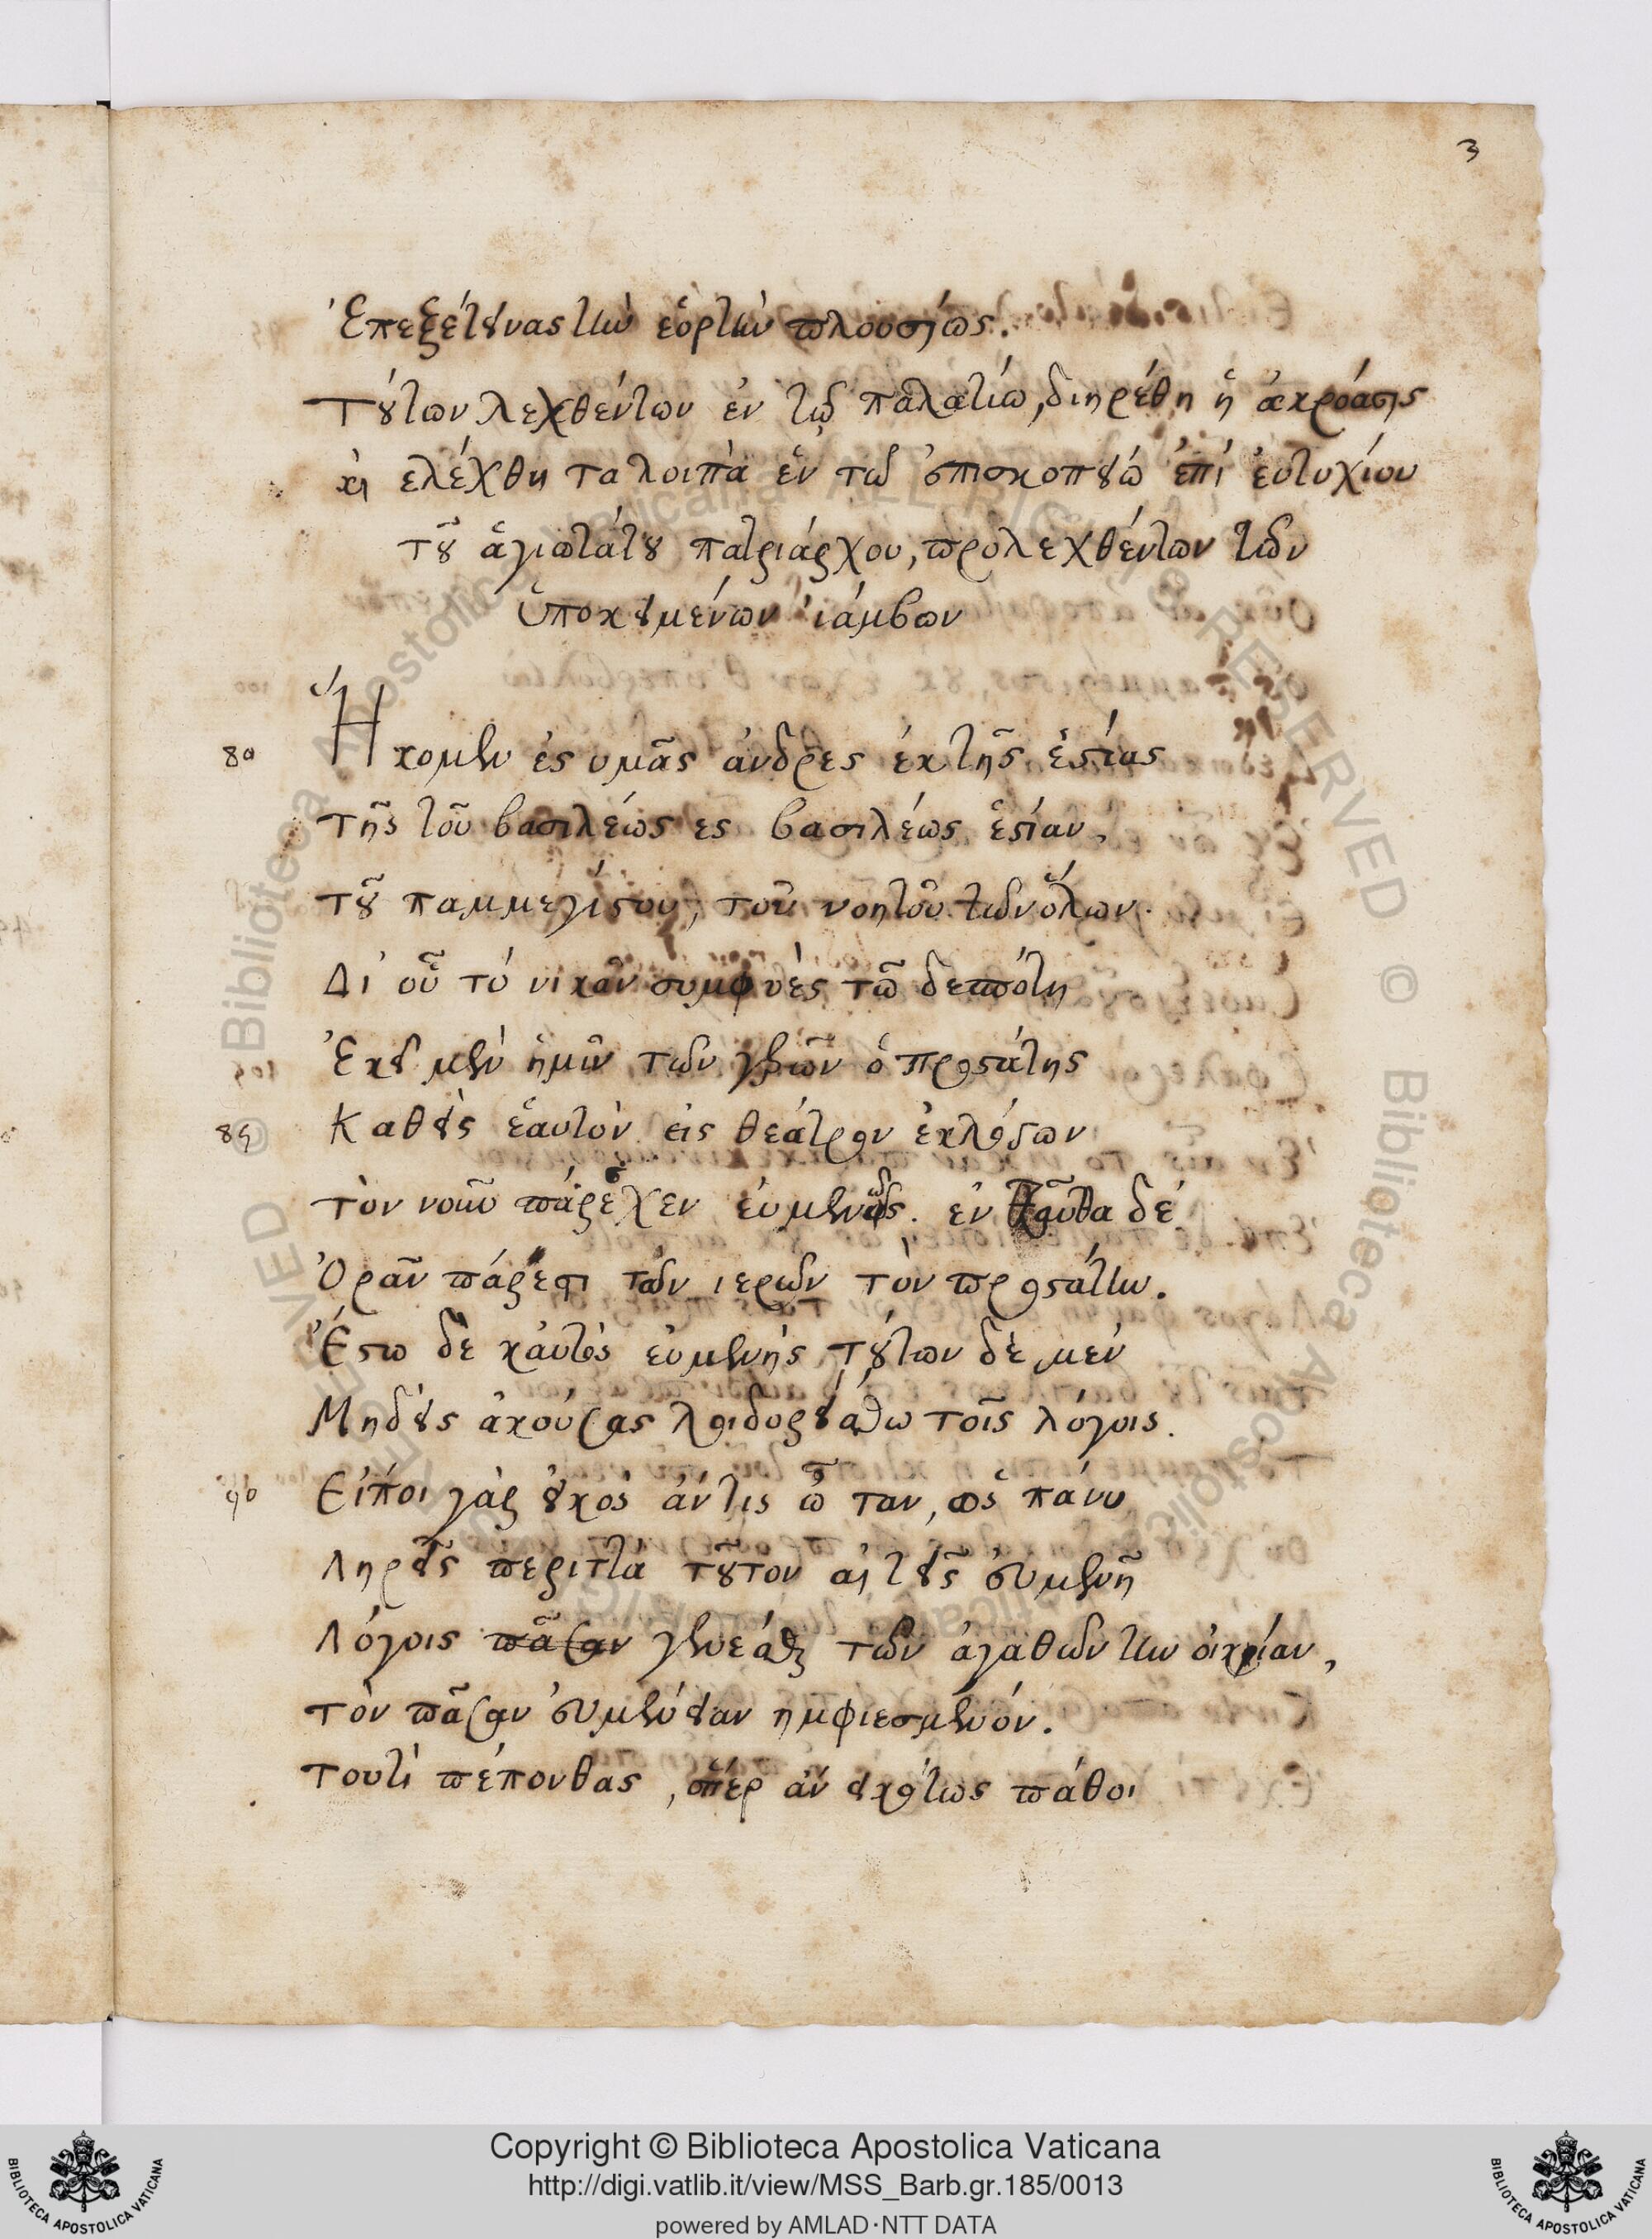 3
Ἐπεξέτεινας τὴν ἑορτὴν πλουσίως.
Τούτων λεχθέντων ἐν τῷ παλατίῳ, διηρέθη ἡ ἀκρόασις
καὶ ελέχθη τα λοιπὰ ἐν τῷ ἐπισκοπείῳ ἐπὶ ἐυτυχίου
τοῦ ἁγιωτάτου πατριάρχου, προλεχθέντων τῶν
ὑποκειμένων ἰάμβων
80 Ἥκομεν ἐς υμᾶς ἀνδρες ἐκ τῆς ἑστίας
τῆς τοῦ βασιλέως ες βασιλέως ἑστίαν,
τοῦ παμμεγίστου, τοῦ νοητοῦ τῶν ὅλων.
Δι' οὗ τὸ νικᾶν συμφυὲς τῶ δεσπότῃ
Ἐκεῖ μὲν ἡμῖν τῶν γεῶν ὁ προστάτης
85 Καθεὶς ἑαυτὸν εἰς θέατρον ἐκ λόγων
τὸν νοῦν πάρεσχεν ἐυμενῶς. ενταῦθα δὲ
Ὁρᾶν πάρεστι τῶν ιερῶν τὸν προστάτην.
Ἔστω δὲ καὐτὸς ευμενὴς τούτων δὲ μὲν
Μηδεὶς ἀκούσας λοιδορείσθω τοῖς λόγοις.
90 Εἴποι γὰρ εἰκὸς ἄν τις ὦ ταν, ὡς πάνυ
Ληρεῖς περιττὰ τοῦτον αἰτεῖς εὐμενῆ
Λόγοις πᾶσαν γενέσθαι τῶν ἀγαθῶν τὴν οἰκίαν,
τὸν πᾶσαν εὐμένειαν ημφιεσμενόν.
τουτὶ πέπονθας, ὅπερ ἀν εἰκότως πάθοι
Copyright © Biblioteca Apostolica Vaticana
http://digi.vatlib.it/view/MSS_Barb.gr.185/0013
powered by AMLAD·NTT DATA